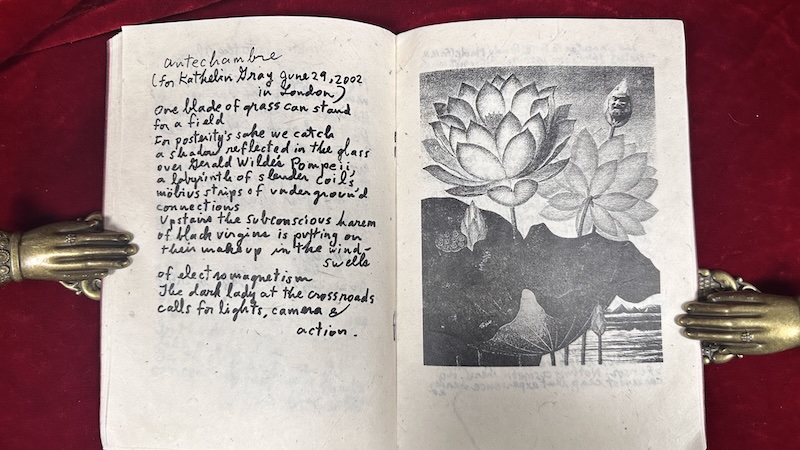 antechambre
(for Kathelin Gray June 29, 2002
in London)
One blade of grass can stand
for a field
For posterity's sake we catch
a shadow reflected in the glass
over Gerald Wilde's Pompeii,
a labyrinth of slender coils,
möbius strips of underground
connections
Upstairs the subconscious harem
of black virgins is putting on
their makeup in the wind-
swells
of electromagnetism
The dark lady at the crossroads
calls for lights, camera &
action.